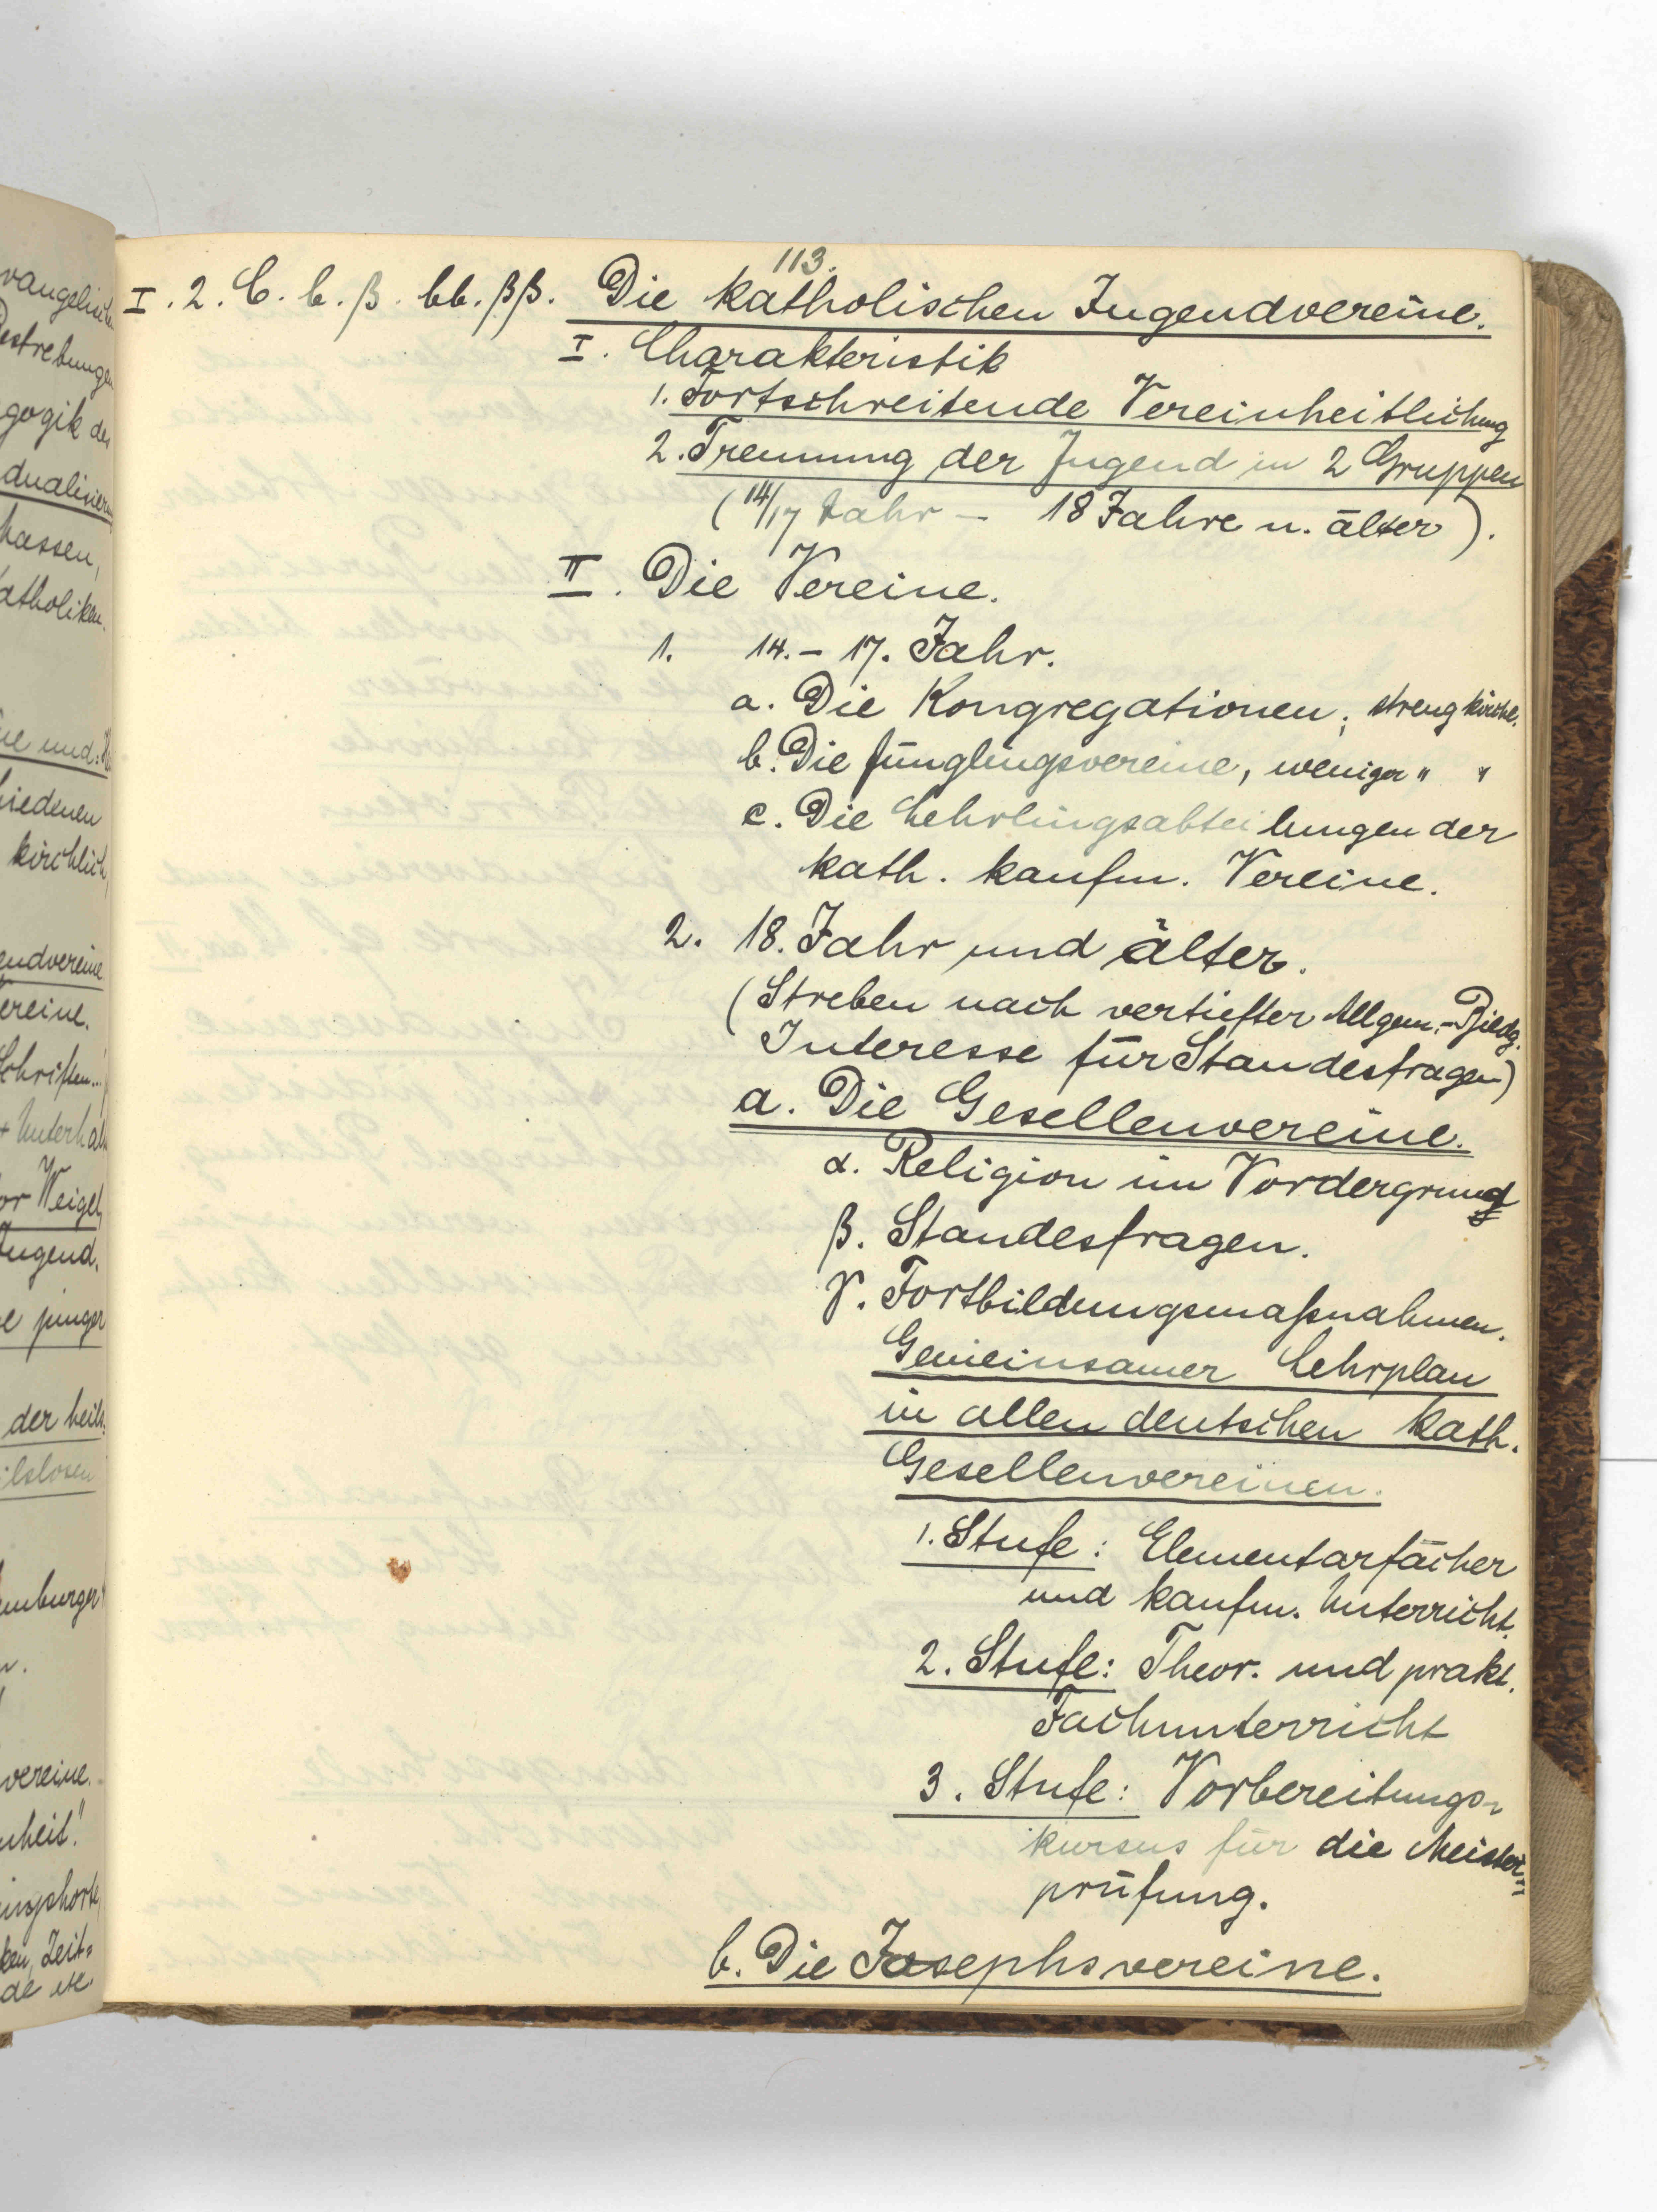 vangelischen
Bestrebungen
gogik der
dualisierung
hassen,
Katholiken.
ne und
hiedenen
kirchlich,
endvereine
ereine.
Schriften...
+ Unterhal
or Weigel
Jugend.
e junger
der heils
ilslosen
emburger"
vereine.
nheit."
ingshorte
ken, Zeit=
de etc.
113.
I. 2. C. b. β. bb. ββ. Die katholischen Jugendvereine.
I. Charakteristik
1. Fortschreitende Vereinheitlichung
2. Trennung der Jugend in 2 Gruppen
(14/17 Jahr – 18 Jahre u. älter).
II. Die Vereine.
1. 14. – 17. Jahr.
a. Die Kongregationen; streng kirchl.
b. Die Jünglingsvereine, weniger " "
c. Die Lehrlingsabteilungen der
kath. kaufm. Vereine.
2. 18. Jahr und älter.
(Streben nach vertiefter Allgem.-Bildg.
Interesse für Standesfragen)
a. Die Gesellenvereine.
α. Religion im Vordergrund
β. Standesfragen.
γ. Fortbildungsmaßnahmen.
Gemeinsamer Lehrplan
in allen deutschen kath.
Gesellenvereinen.
1. Stufe: Elementarfächer
und kaufm. Unterricht.
2. Stufe: Theor. und prakt.
Fachunterricht
3. Stufe: Vorbereitungs-
kursus für die Meister=
prüfung.
b. Die Josephsvereine.